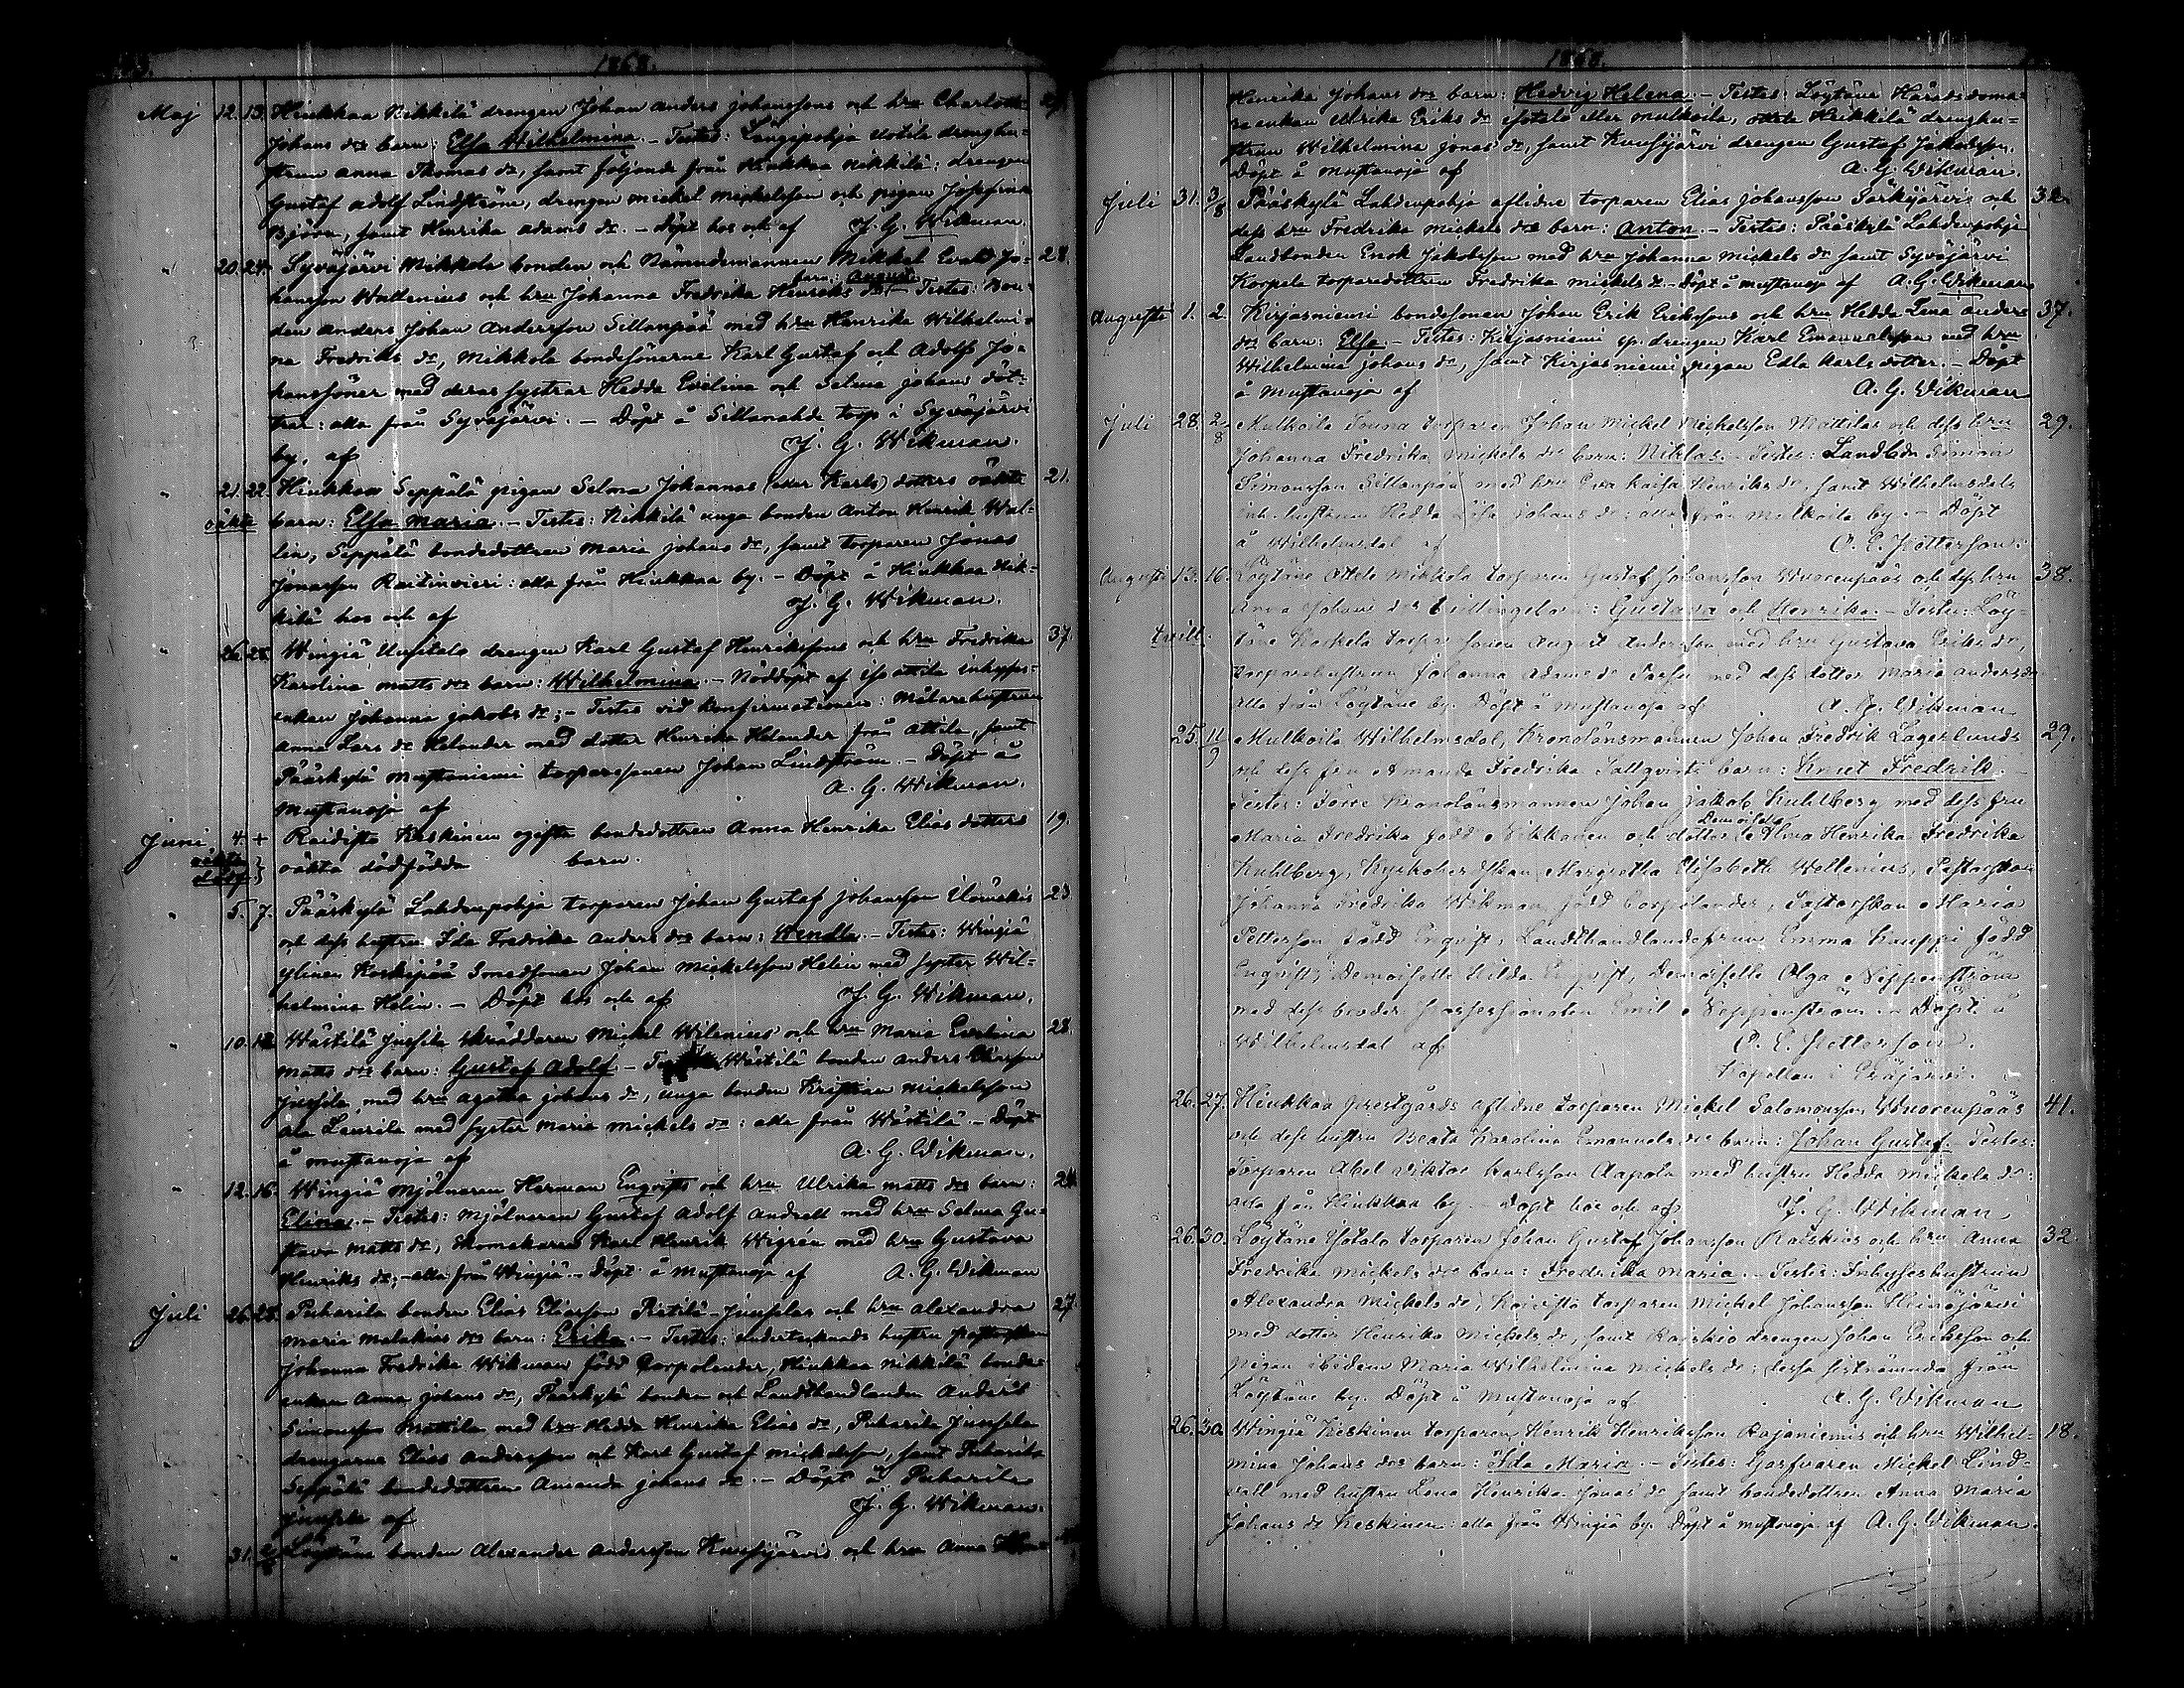 1868.
Maj 12. 13. Hinkkaa Nikkilä drengen Johan Anders Johanssons och hru Charlotta
Johans drs barn: Elsa Wilhelmina. - Testes: Längipohja Uotila drenghu-
strun Anna Thomas dr, samt följande från Hinkkaa Nikkilä: drengen
Gustaf Adolf Lindström, drengen Mickel Mickelsson och pigan Josefina
Björn, samt Henrika Adams dr. - Döpt hos och af J. G. Wikman.
20. 24. Syväjärvi Mikkola bonden och Nämndemannen Mikkel Evald Jo- 28.
barn: August
hansson Wallenius och hru Johanna Fredrika Henriks drs - Testes: Bon-
den Anders Johan Andersson Sillanpää med hru Henrika Wilhelmi-
na Fredriks dr, Mikkola bondesönerne Karl Gustaf och Adolf Jo-
hanssöner med deras systrar Hedda Evelina och Selma Johans döt-
trar: alla från Syväjärvi. - Döpt å Sillanahde torp i Syväjärvi
by, af J. G. Wikman.
21. 22. Hinkkaa Seppälä pigan Selma Johannas (eller Karls) dotters oäkta 21.
oäkta barn: Elsa Maria. - Testes: Nikkilä unga bonden Anton Henrik Wal-
lin, Seppälä bondedottren Maria Johans dr, samt torparen Jonas
Jonasson Raitinvieri: alla från Hinkkaa by. - Döpt å Hinkkaa Nik-
kilä hos och af J. G. Wikman.
26. 28. Wingiä Uusitalo drengen Karl Gustaf Henrikssons och hru Fredrika 37.
Karolina Matts drs barn: Wilhelmina. - Nöddöpt af Iso Attila inhyses-
enkan Johanna Jakobs dr; - Testes vid konfirmationen: Målarehustrun
Anna Lars dr Helander med dotter Henrika Helander från Attila, samt
Pääskylä Mustaniemi torparesonen Johan Lindström. - Döpt å
Mustanoja af A. G. Wikman.
Juni 4. + Raidisto Keskinen ogifta bondedottren Anna Henrika Elias dotters 19.
oäkta oäkta dödfödda barn.
5. 7. Pääskylä Lahdenpohja torparen Johan Gustaf Johansson 23
och dess hustru Ida Fredrika Anders drs barn: Wendla. - Testes: Wingiä
Ylinen Koskipää Smedsonen Johan Mickelsson Helin med syster Wil-
helmina Helin. - Döpt hos och af J. G. Wikman.
10. 12. Wästilä Jussila skräddaren Mickel Wilenius' och hru Maria Evelina 28.
Matts drs barn: Gustaf Adolf - Testes: Wästilä bonden Anders
Jussila, med hru Agatha Johans dr, unga bonden Kristian Mickelsson
Ala Laurila med syster Maria Mickels dr: alla från Wästilä - Döpt
å Mustanoja af A. G. Wikman.
12. 16. Wingiä mjölnaren Herman Engvists och hru Ulrika Matts drs barn: 24.
Elina. - Testes: mjölnaren Gustaf Adolf Andsell med hru Selma Gu-
stava Matts dr, skomakaren Karl Henrik Wigren med hru Gustava
Henriks dr; - alla från Wingiä. - Döpt å Mustanoja af A. G. Wikman
Juli 26. 28. Puharila bonden Elias Eliasson Rietilä-Junnilas och hru Alexandra 27.
Maria Malakias drs barn: Erika. - Testes: undertecknads hustru pastorskan
Johanna Fredrika Wikman född Carpelander, Hinkkaa Nikkilä bonde-
enkan Anna Johans dr, Pääskylä bonden och Landthandlanden Anders
Simonsson Mattila med hru Hedda Henrika Elias dr, Puharila Junnila
drengarne Elias Andersson och Karl Gustaf Mickelsson, samt Puharila
Seppälä bondedottren Amanda Johans dr. - Döpt å Puharila
Junnila af J. G. Wikman.
31. Löytäne bonden Alexander Andersson Kuusijärvis och hru Anna
1868.
Henrika Johans drs barn: Hedvig Helena. - Testes: Löytäne Häradsdoma-
re enkan Ulrika Eriks dr Isotalo eller Mulkoila, Attila Heikkilä drenghu-
strun Wilhelmina Jonas dr, samt Kuusijärvi drengen Gustaf Jakobsson.
Döpt å Mustanoja af A. G. Wikman.
Juli 31. 3/8 Pääskylä Lahdenpohja aflidne torparen Elias Johansson Särkijärvis och 32.
dess hru Fredrika Mickels drs barn: Anton. - Testes: Pääskylä Lahdenpohja
Landbonden Enok Jakobsson med hru Johanna Mickels dr samt Syväjärvi
Korpela torparedottren Fredrika Mickels dr. - Döpt å Mustanoja af A. G. Wikman
Augusti 1. 2. Kirjasniemi bondesonen Johan Erik Erikssons och hru Hedda Lena Anders 37.
drs barn: Elsa - Testes: Kirjasniemi sp. drengen Karl Emanuelsson med hru
Wilhelmina Johans dr, samt Kirjasniemi pigan Edla Karls dotter. - Döpt
å Mustanoja af A. G. Wikman
Juli 28. 2/8 Mulkoila Jouna torparen Johan Mickel Mickelsson Mattilas och dess hru 29.
Johanna Fredrika Mickels drs barn: Niklas. - Testes: Landbdn Simon
Simonsson Sillanpää med hru Eva Kaisa Henriks dr, samt Wilhelmsdals
inh. hustrun Hedda Lisa Johans dr: alla från Mulkoila by. - Döpt
å Wilhelmsdal af C. E. Petterson.
Augusti 13. 16. Löytäne Attila Mikkola torparen Gustaf Johansson Wuorenpääs och dess hru 38.
Anna Johans drs tvillingebarn: Gustava och Henrika. - Testes: Löy-
tvill. täne Koskela torpar sonen August Andersson med hru Gustava Eriks dr,
torparehustrun Johanna Adams dr med dess dotter Maria Anders dr
alla från Löytäne by. Döpt å Mustanoja af A. G. Wikman
25. 11/9 Mulkoila Wilhelmsdal, Kronolänsmannen Johan Fredrik Lagerlunds 29.
och dess fru Amanda Fredrika Sallqvists barn: Knut Fredrik. -
Testes: Förre Kronolänsmannen Johan Jakob Kuhlberg med dess fru
Demoiselle
Maria Fredrika född Nikkanen och dotter Alma Henrika Fredrika
Kuhlberg, Kyrkoherdskan Margretha Elisabeth Wellenius, Pastorskan
Johanna Fredrika Wikman född Carpelander, Pastorskan Maria
Petterson född Enqvist, Landthandlandefrun Emma Kauppi född
Enqvist, Demoiselle Hilda Enqvist, Demoiselle Olga Neppenström
med dess broder Possessionaten Emil Neppenström. - Döpt å
Wilhelmsdal af C. E. Petterson.
Kapellan i Eräjärvi.
26. 27. Hinkkaa Prestgårds aflidne torparen Mickel Salomonsson Wuorenpääs 41.
och dess hustru Beata Karolina Emanuels drs barn: Johan Gustaf. - Testes:
Torparen Abel Viktor Carlsson Aapola med hustru Hedda Mickels dr:
alla från Hinkkaa by. - Döpt hos och af J. G. Wikman
26. 30. Löytäne Isotalo torparen Johan Gustaf Johansson Raiskios och hru Anna 32.
Fredrika Mickels drs barn: Fredrika Maria. - Testes: Inhyseshustrun
Alexandra Mickels dr, Koivisto torparen Mickel Johansson Heinäjärvi
med dotter Henrika Mickels dr, samt Raiskio drengen Johan Eriksson och
pigan ibidem Maria Wilhelmina Mickels dr; dessa sistnämnda från
Löytäne by. Döpt å Mustanoja af A. G. Wikman
26. 30. Wingiä Keskinen torparen Henrik Henriksson Rajaniemis och hru Wilhel- 18.
mina Johans drs barn: Ida Maria. - Testes: Garfvaren Mickel Lind-
vall med hustru Lena Henrika Jonas dr samt bondedottren Anna Maria
Johans dr Keskinen: alla från Wingiä by. Döpt å Mustanoja af A. G. Wikman.